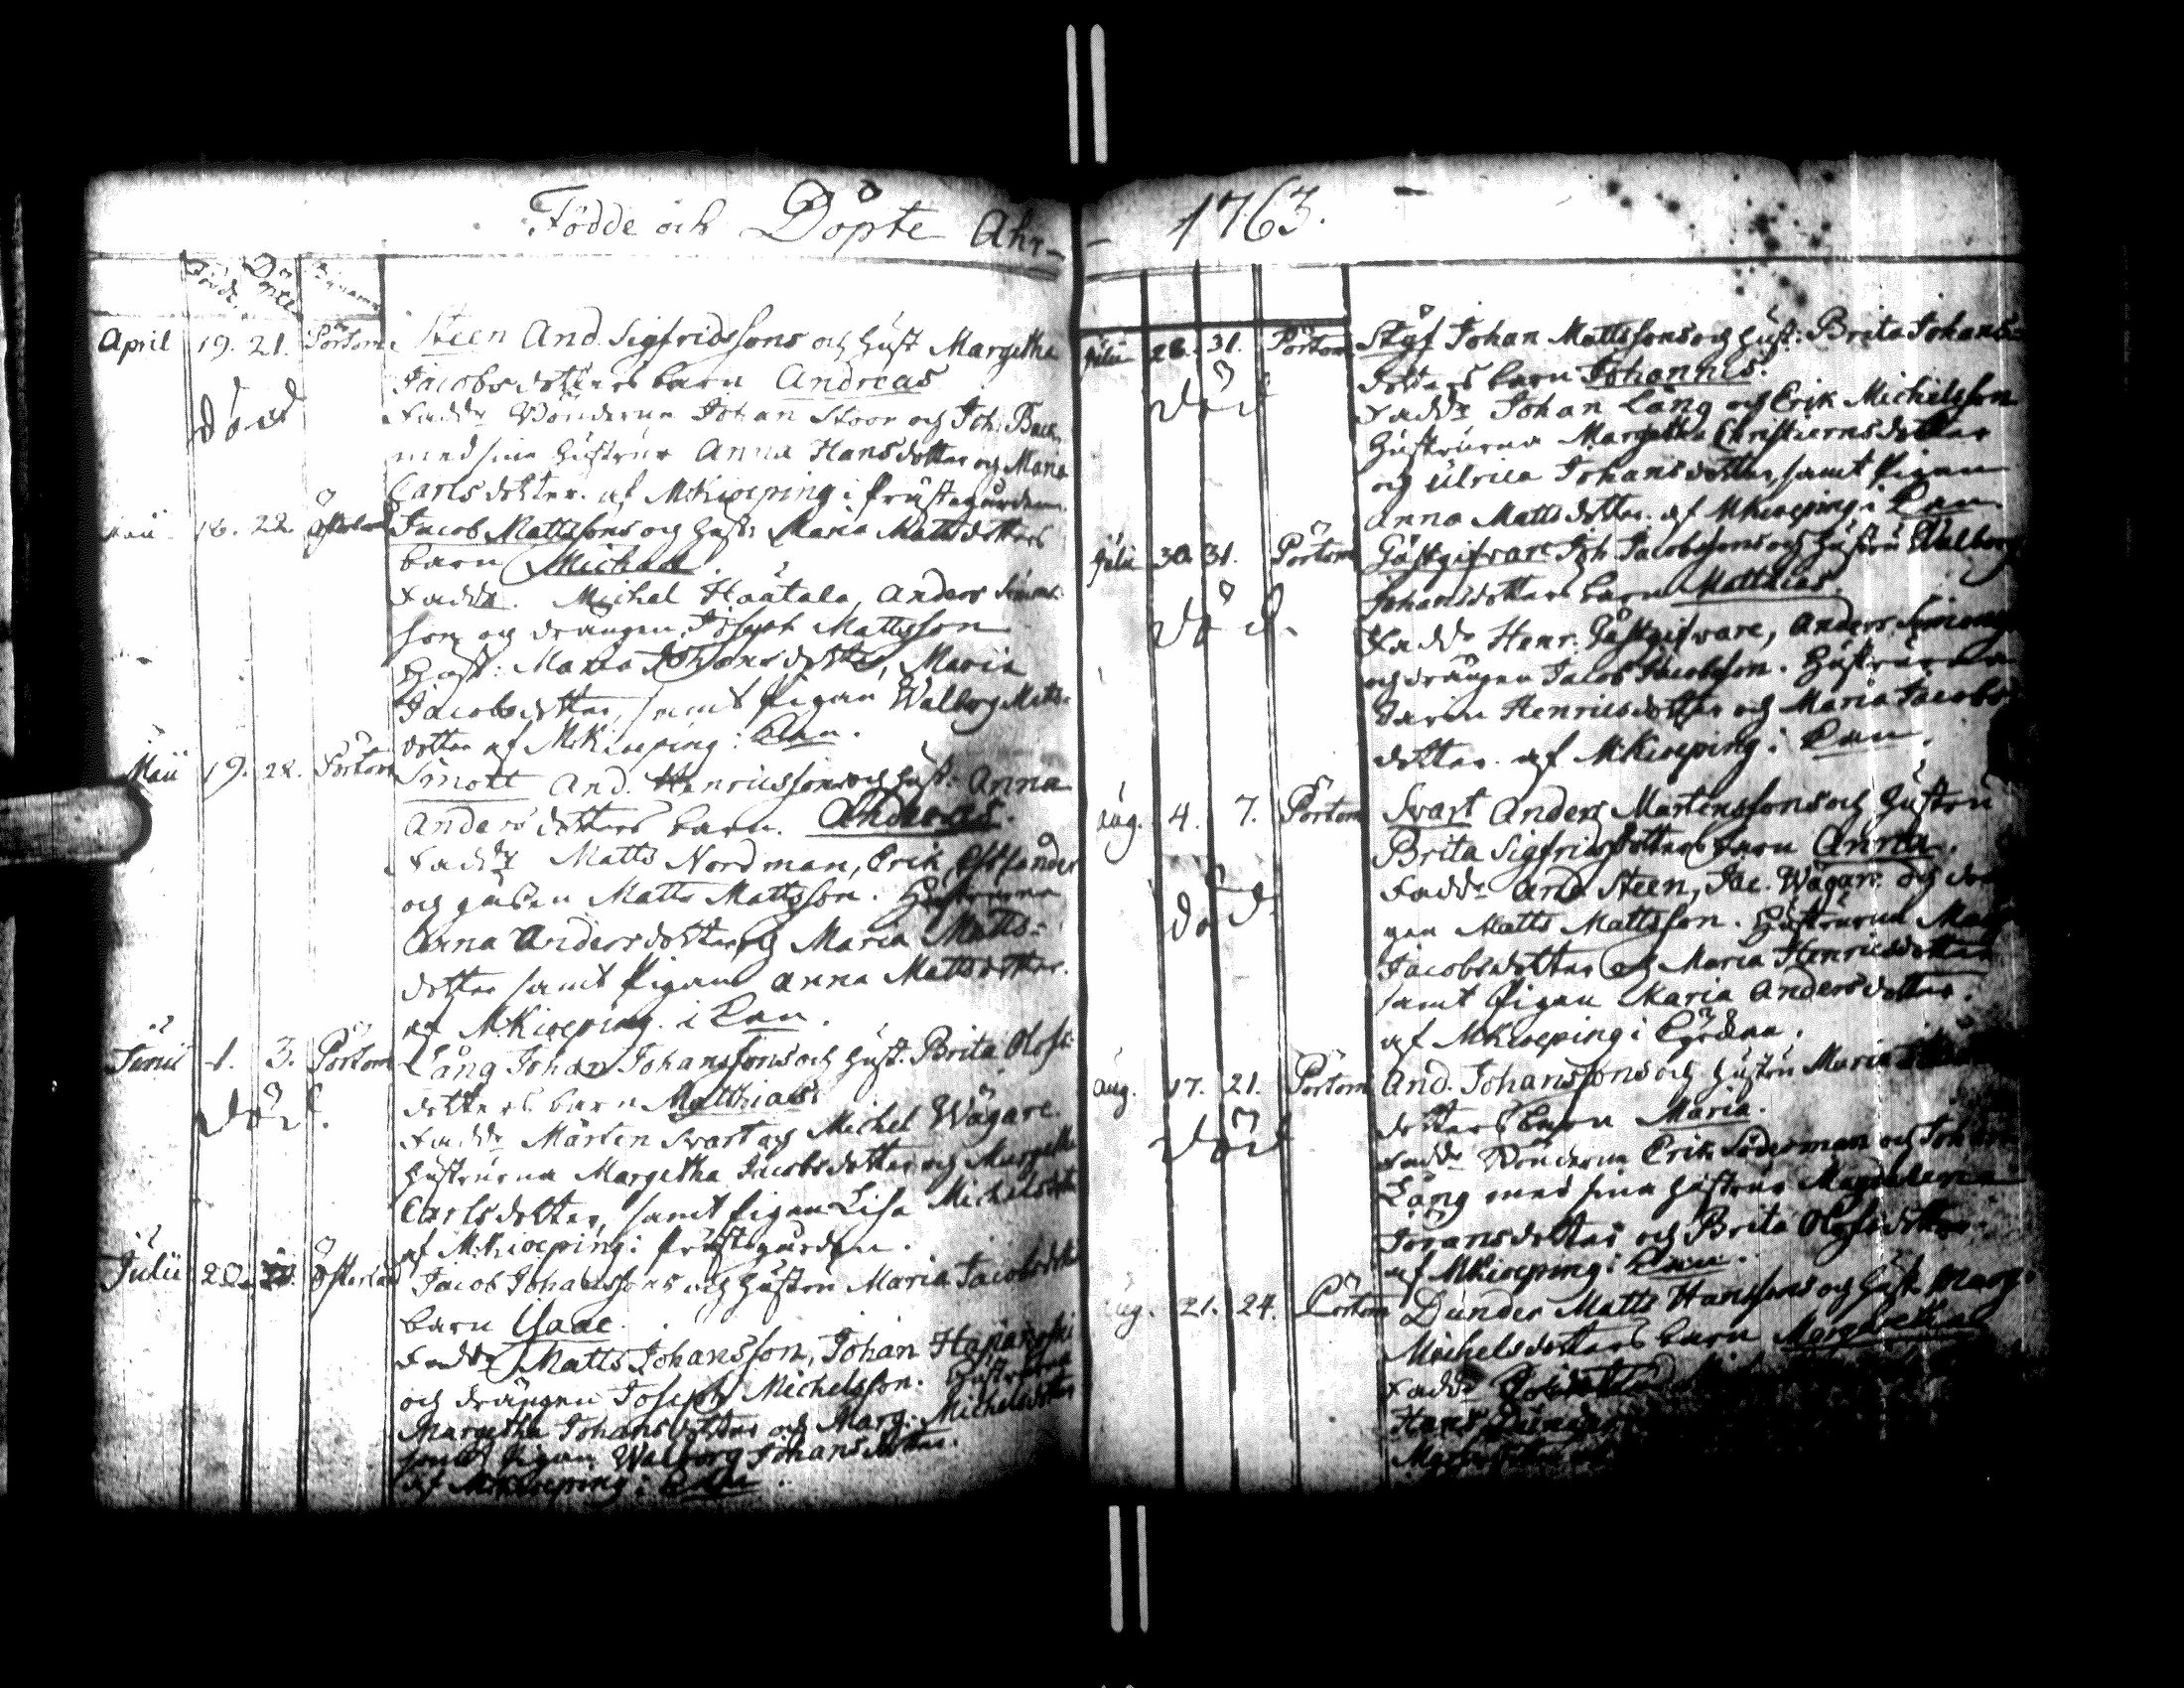 Födde och Döpte Åhr 1763.
Födde. Döpte Bynamn
April 19. 21. Pörtom Steen And. Sigfridssons och Hust Margetha
Jacobsdotters barn Andreas
död Fadd: Bönderna Johan Stoor och Joh. Back
med sina Hustrur Anna Hansdotter og Maria
Carlsdotter. af MKioeping i Prästegården
Maii 18. 22. Österland Jacob Mattssons och Hust: Maria Mattsdotters
barn Michael.
Fadd. Michel Hautala, Anders Simons
son och drängen Joseph Mattsson
Hust: Maria Johansdotter, Maria
Jacobsdotter, samt Pigan Walborg Matts
dotter af MKioeping i
Maii 19. 22. Pörtom Smott And. Henricssons och Hust: Anna
Andersdotters barn. Andreas.
Fadd: Matts Nordman, Erik
och gåssen Matts Mattsson. Hustrurna
Anna Andersdotter och Maria Matts-
dotter samt Pigan Anna Mattsdotter.
af MKioeping. i
Junii 1. 3. Pörtom Lång Johan Johanssons och Hust. Brita Olofs
dotters barn Matthias.
död. Fadd: Mårten Svart och Michel Wägare.
Hustrurna Margetha Jacobsdotter och Margetha
Carlsdotter, samt Pigan Lisa Michelsdotter
af MKioeping i Prästegården.
Julii 22. Österland Jacob Johanssons och Hustru Maria Jacobsdotters
barn Isaac.
Fadd: Matts Johansson, Johan
och drängen Joseph Michelsson. Hustrurna
Margetha Johansdotter och Marg. Michelsdotter
samt Pigan Walborg Johansdotter.
af MKioeping i
Julii 28. 31. Pörtom Johan Mattssons och Hust: Brita Johans-
dotters barn Johannes.
död Fadd: Johan Lång och Erik Michelsson
Hustrurna Margetha Christiernsdotter
och Ulrica Johansdotter, samt Pigan
Anna Mattsdotter. af MKioeping i
Julii 30. 31. Pörtom Gästgifvare Joh. Jacobssons och Hustru Walborg
Johansdotters barn Matthias.
död. Fadd: Henr. Gästgifvare, Anders
och drängen Jacob Jacobsson. Hustrurna
Carin Henricsdotter och Maria Jacobs
dotter. af MKioeping i
Aug. 4. 7. Pörtom Svart Anders Mårtenssons och Hustru
Brita Sigfridsdotters barn Anna.
död. Fadd: And. Steen, Jac. Wägare och drän
gen Matts Mattsson. Hustrurna Marg
Jacobsdotter och Maria Henricsdotter
samt Pigan Maria Andersdotter.
af MKioeping i
Aug. 17. 21. Pörtom And. Johanssons och Hustru Maria
dotters barn Maria.
död Fadd: Bönderna Erik Söderman och Johan
Lång med sina Hustrur Magdalena
Göransdotter och Brita Olofsdotter.
af MKioeping i
Aug. 21. 24. Pörtom Dunder Matts Hanssons och Hust. Marg.
Michelsdotters barn Margaretha
Fadd:
Hans Dunder